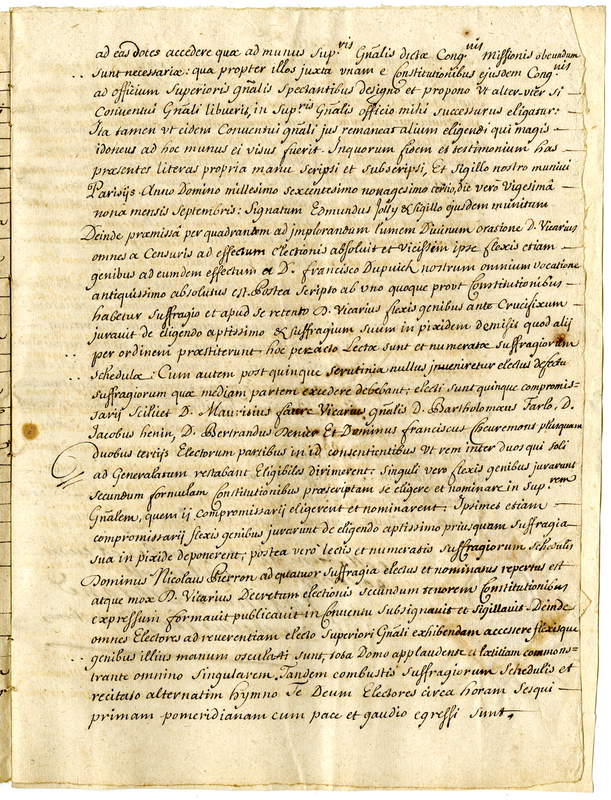 ad eas dotes accedere quæ ad munus Sup.ris Gñalis dictæ Cong.nis Missionis obeundum
sunt necessariæ: qua propter illos juxta vnam e Constitutionibus ejusdem Cong.nis
ad officium Superioris gñalis Spectantibus designo et propono vt alter-vter si
Conventus Gñali libuerit, in Sup.ris Gñalis officio mihi successurus eligatur:
Ita tamen vt eidem Conventui gñali jus remaneat alium eligendi qui magis
idoneus ad hoc munus ei visus fuerit. Inquorum fidem et testimonium has
præsentes literas propria manu scripsi et subscripsi, Et Sigillo nostro munivi
Parisijs Anno Domino millesimo sexcentesimo nonagesimo tertio, die vero Vigesimâ
nona mensis Septembris: Signatum Edmundus Jolly & sigillo ejusdem munitum
Deinde præmissâ per quadrantem ad implorandum lumem Divinum oratione D. Vicarius
omnes a Censuris ad effectum electionis absoluit et vicissim ipse flexis etiam
genibus ad eumdem effectum a D. Francisco Dupuich nostrum omnium vocatione
antiquissimo absolutus est. Postea Scripto ab vno quoque prout Constitutionibus
habetur suffragio et apud se retento D. Vicarius flexis genibus ante Crucifixum
juravit de eligendo aptissimo & suffragium suum in pixidem demisit quod alij
per ordinem præstiterunt hoc peracto Lectæ sunt et numeratæ suffragiorum
schedulæ: Cum autem post quinque scrutinia nullus inveniretur electus defectu
suffragiorum quæ mediam partem excedere debebant; electi sunt quinque compromis-
sarij scilicet D. Maurisius faure Vicarius gñalis D. Bartholomæus Tarlo, D.
Jacobus henin, D. Bertrandus Denier Et Dominus franciscus Cheuremons plusquam
duobus tertijs Electorum partibus in id consentientibus vt rem inter duos qui soli
ad Generalatum restabant Eligibiles dirimerent: singuli vero flexis genibus jurarunt
secundum formulam Constitutionibus præscriptam se eligere et nominare in Sup.rem
Gñalem, quem ij compromissarij eligerent et nominarent: Ipsimet etiam
compromissarij flexis genibus jurarunt de eligendo aptissimo priusquam suffragia
sua in pixide deponerent; postea vero lectis et numeratis suffragiorum schedulis
Dominus Nicolaus Pierron ad quatuor suffragia electus et nominatus repertus est
atque mox D. Vicarius Decretum electionis secundum tenorem Constitutionibus
expressum formavit publicavit in Conventu Subsignavit et Sigillavit. Deinde
omnes Electores ad reverentiam electo Superiori Gñali exhibendam accessere flexisque
genibus illius manum osculati sunt, tota Domo applaudente et lætitiam commons-
trante omnino singularem. Tandem combustis suffragiorum schedulis et
recitato alternatim hymno Te Deum Electores circa horam sesqui
primam pomeridianam cum pace et gaudio egressi sunt.